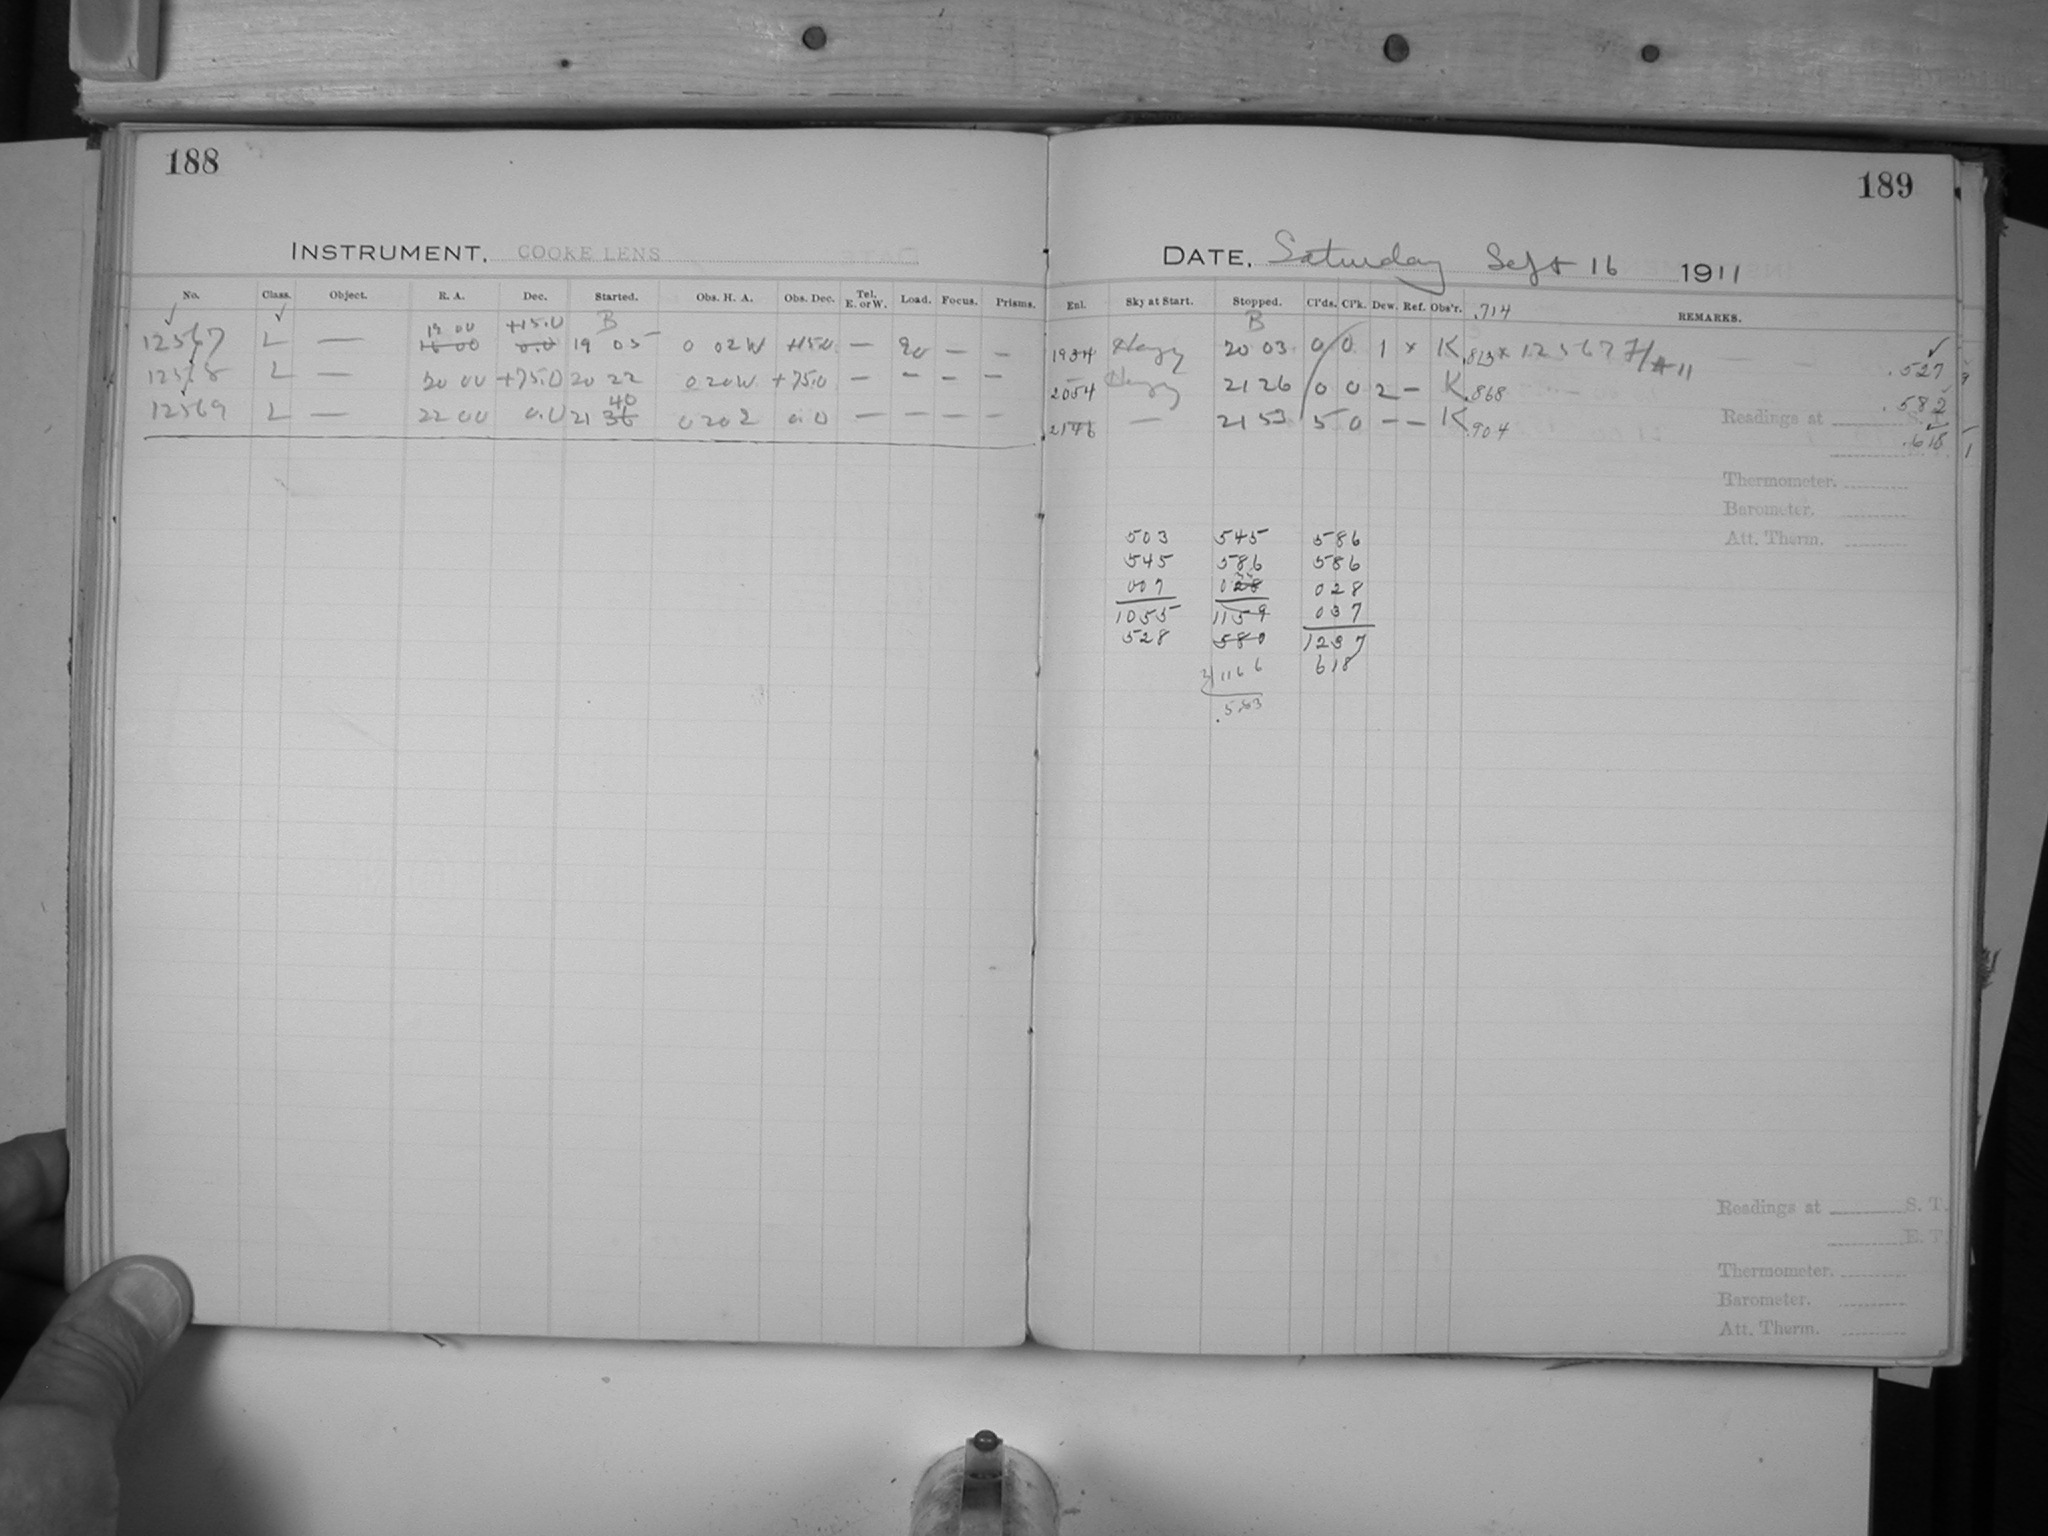 188
189
INSTRUMENT. COOKE LENS
DATE. Saturday Sept 16 1911
No. Class. Object. R. A. Dec. Started. Obs. H. A. Obs. Dec. Tel. E. or W. Load. Focus. Prisms.
Enl. Sky at Start. Stopped. Cl'ds. Cl'k. Dew. Ref. Obs'r. .714 REMARKS.
✓ ✓ 19 00 +15.0 B
B
12567 L — 18 00 0.0 19 05 0 02 W +15.0 — 90 — —
1934 Hazy 20 03 0 0 1 x K .813 x 12567 .527 ✓
12568 L — 20 00 +75.0 20 22 0 20 W +75.0 — — — —
2054 Hazy 21 26 0 0 2 — K .868 .582
40
12569 L — 22 00 0.0 21 36 0 20 E 0.0 — — — —
2146 — 21 53 5 0 — — K .904 .618
Readings at S. T.
Thermometer.
Barometer.
Att. Therm.
503 545 586
545 586 586
007 028 028
1055 1159 037
528 580 1237
2) 1166 618
.583
Readings at S. T.
E. T.
Thermometer.
Barometer.
Att. Therm.